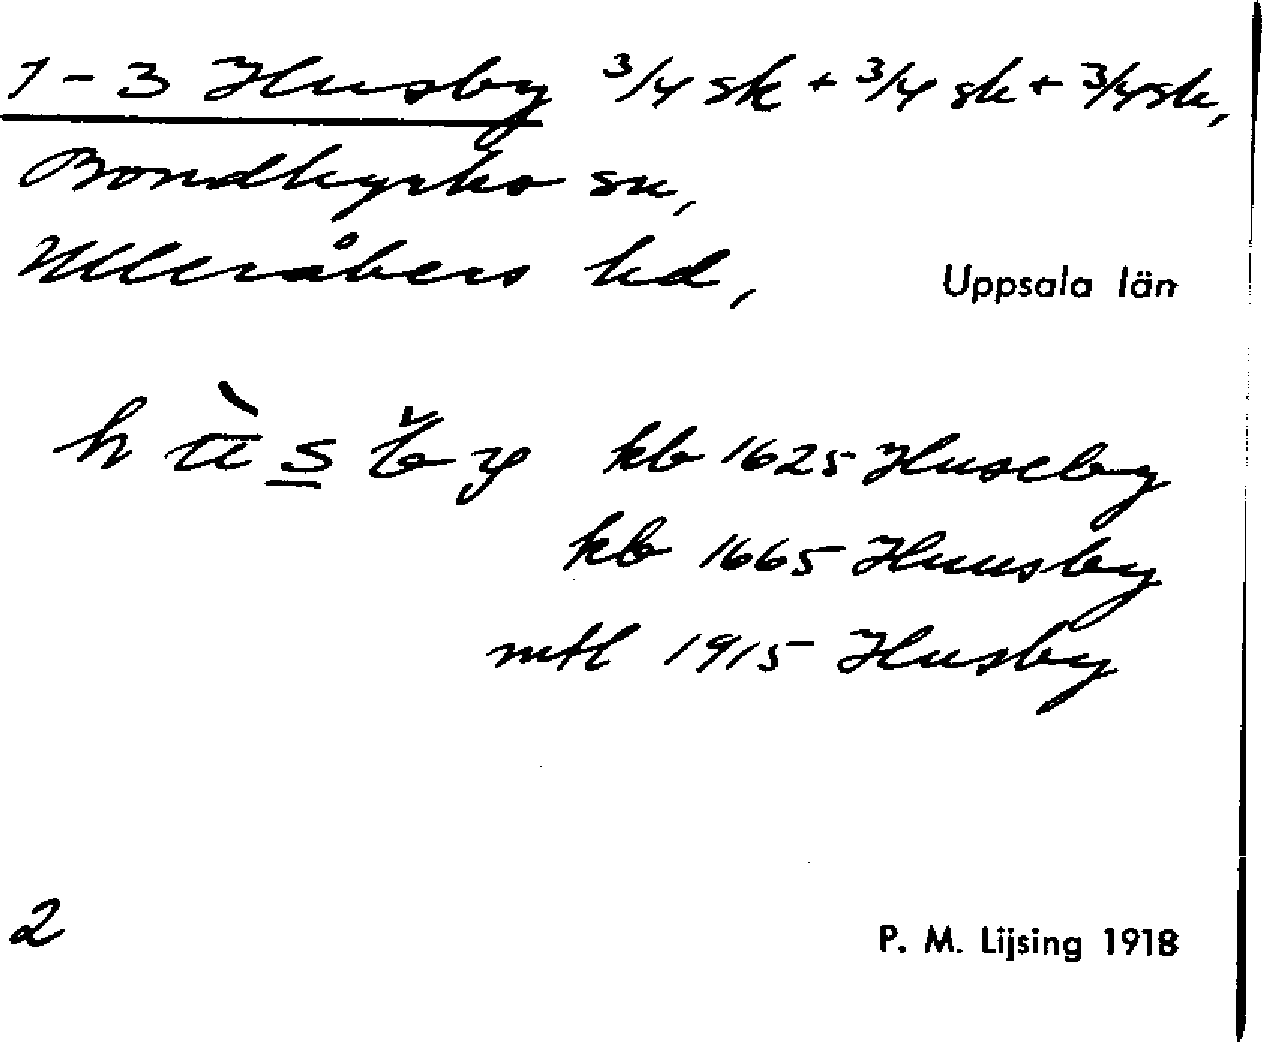 1-3 Husby 3/4 sk + 3/4 sk + 3/4 sk,
Bondkyrko sn,
Ulleråkers hd, Uppsala län
kb 1625 Huseby
kb 1665 Huusby
mtl 1915 Husby
2
P. M. Lijsing 1918